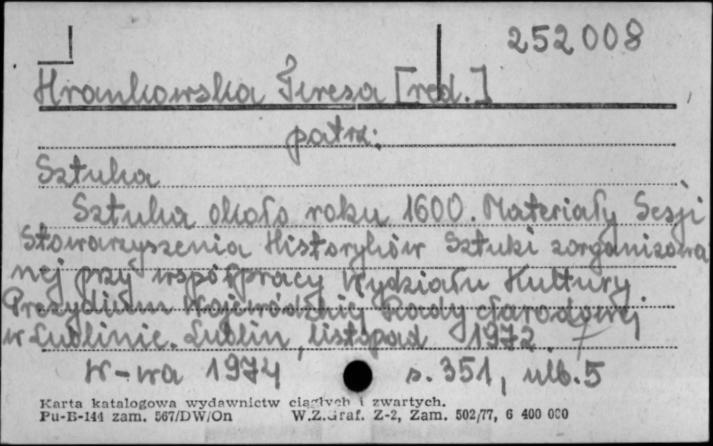 252008
Hrankowska Teresa [red.]
patrz:
Sztuka
Sztuka około roku 1600. Materiały Sesji
Stowarzyszenia Historyków Sztuki zorganizowa
nej przy współpracy Wydziału Kultury
Prezydium Wojewódzkiej Rady Narodowej
w Lublinie. Lublin, listopad 1972.
W-wa 1974 s. 351, nlb. 5
Karta katalogowa wydawnictw ciągłych i zwartych.
Pu-B-144 zam. 567/DW/On W.Z.Graf. Z-2, Zam. 502/77, 6 400 000